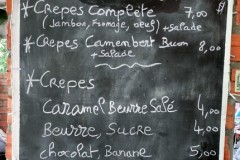 *Crepes Complète 7,00
(Jambon, Fromage, oeuf) + Salade
*Crepes Camembert Bacon 8,00
+ Salade
*Crepes
Caramel Beurre Salé 4,00
Beurre, Sucre 4,00
chocolat, Banane 5,00